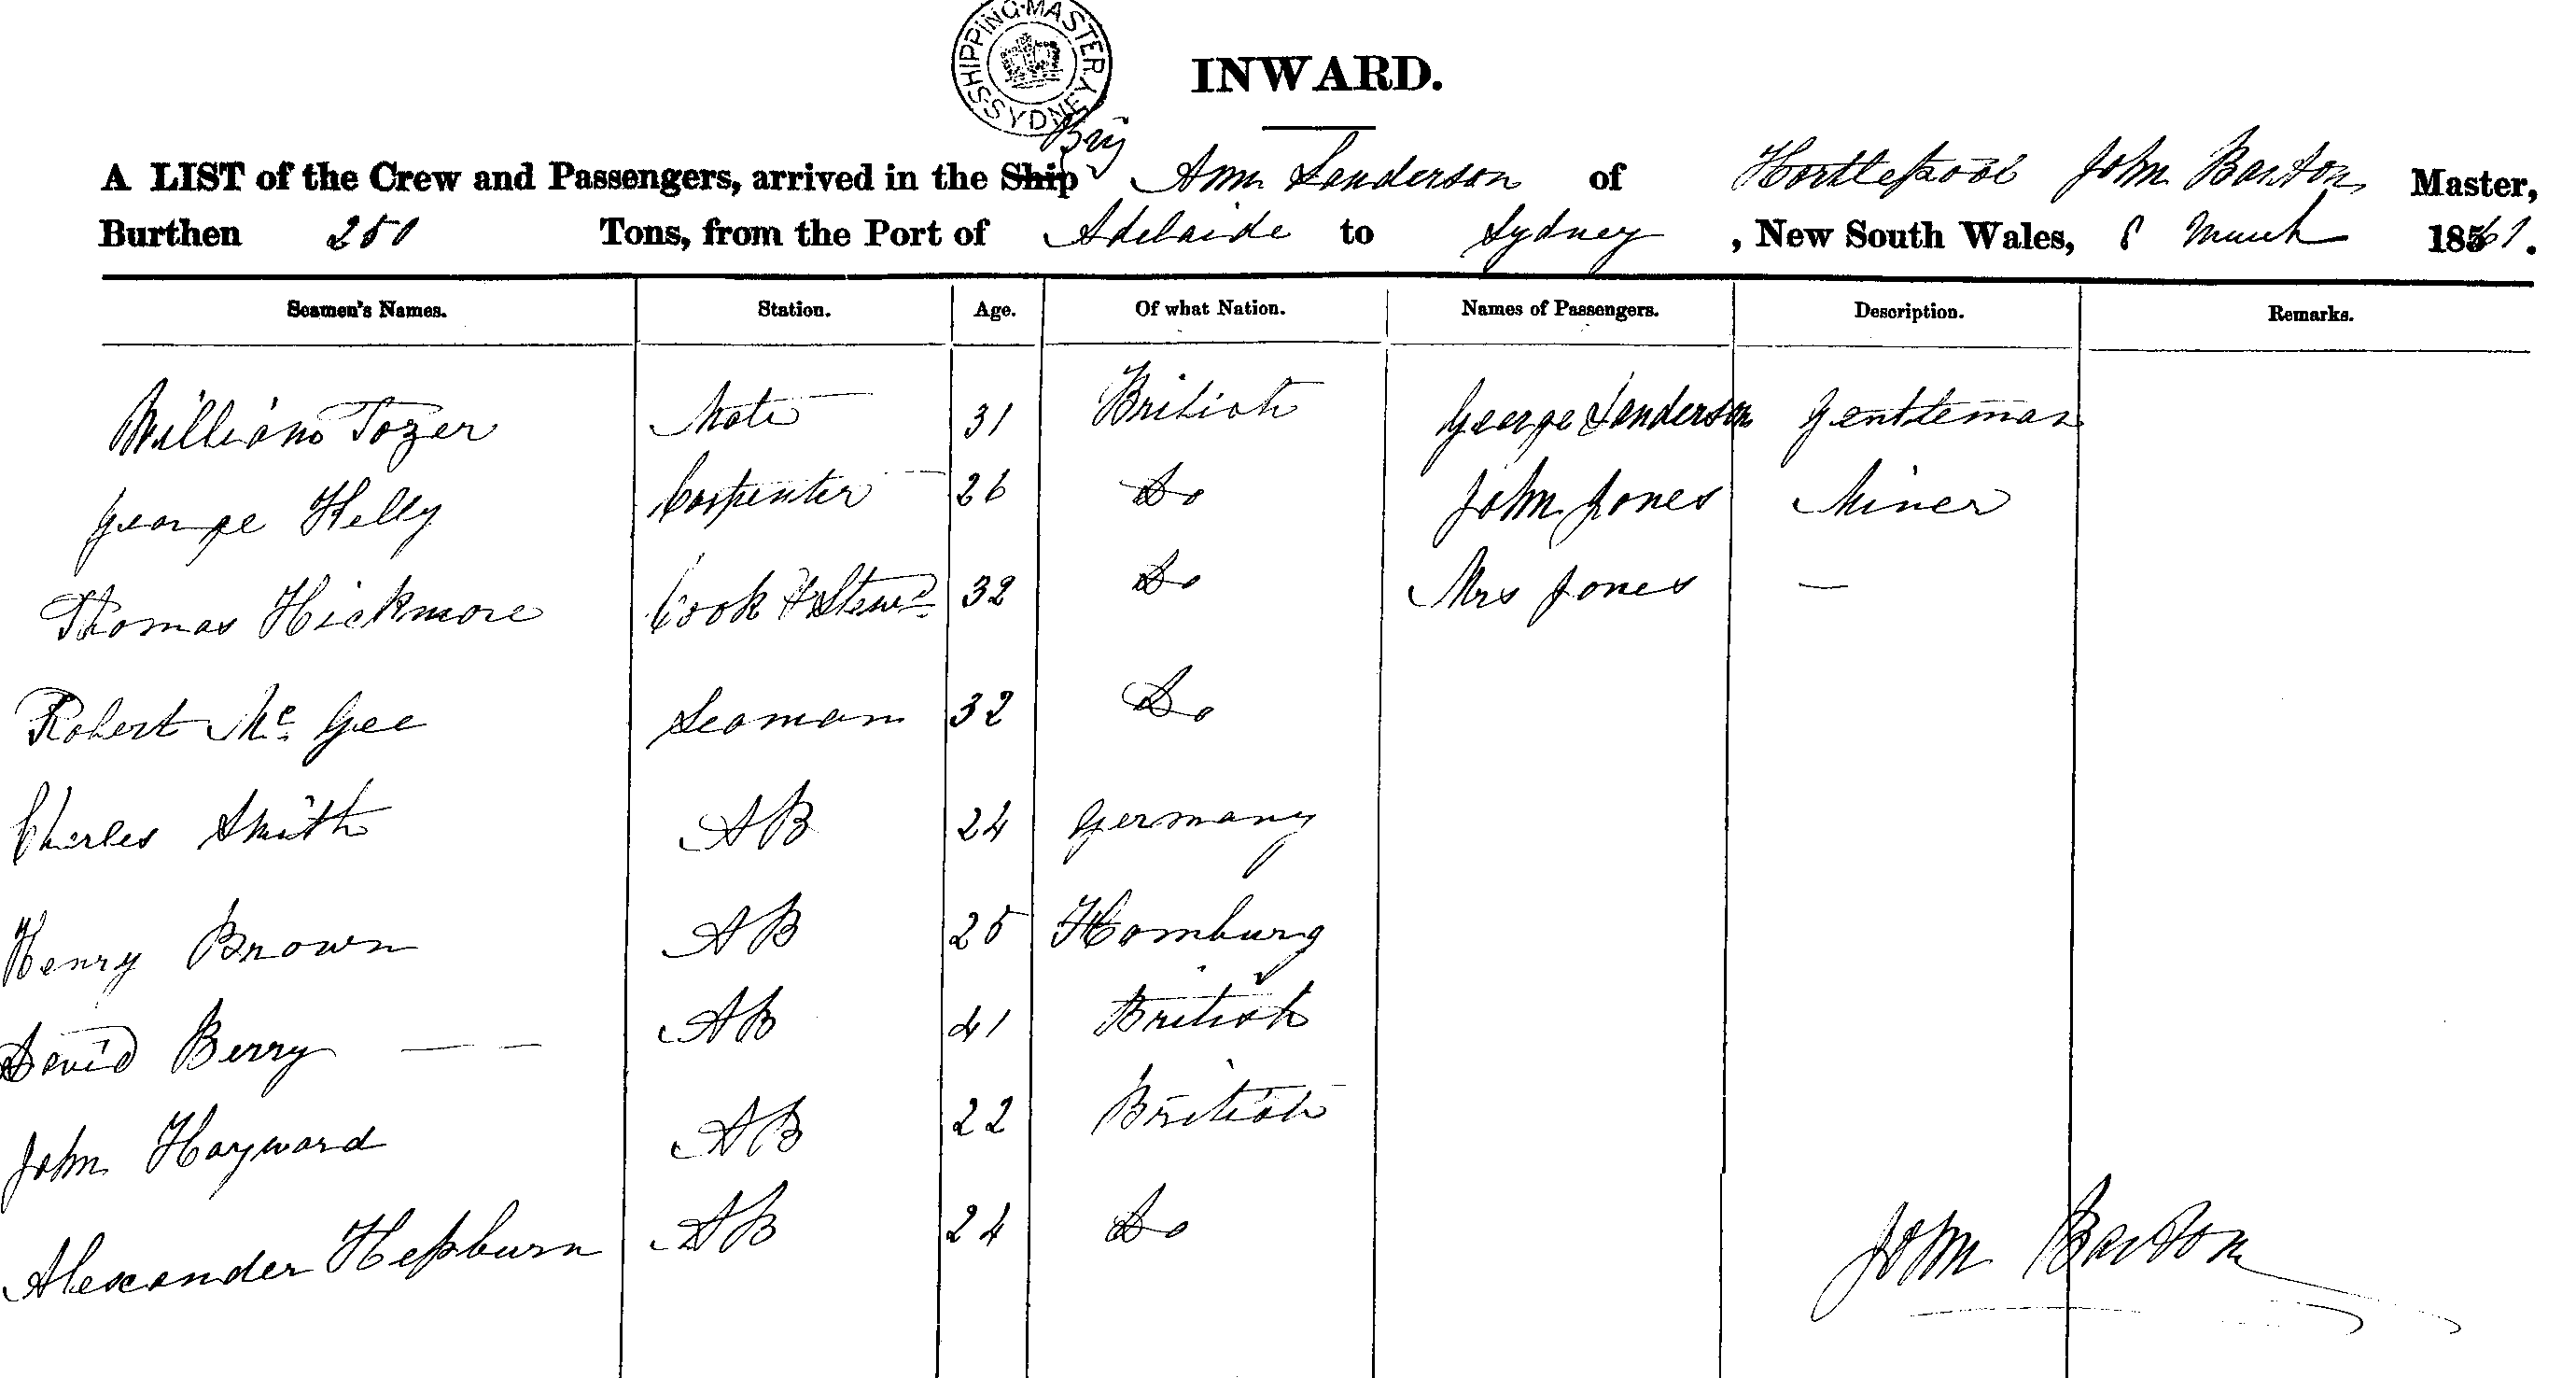 SHIPPING·MASTER SYDNEY
INWARD.
Brig
A LIST of the Crew and Passengers, arrived in the Ship Ann Sanderson of Hartlepool John Barton Master,
Burthen 250 Tons, from the Port of Adelaide to Sydney , New South Wales, 8 March 1861.
Seamen's Names. Station. Age. Of what Nation. Names of Passengers. Description. Remarks.
William Tozer Mate 31 British George Sanderson Gentleman
George Kelly Carpenter 26 Do John Jones Miner
Thomas Hickmore Cook & Stewd 32 Do Mrs Jones —
Robert Mc Gee Seaman 32 Do
Charles Smith AB 24 Germany
Henry Brown AB 25 Hamburg
David Berry — — AB 41 British
John Hayward AB 22 British
Alexander Hepburn AB 24 Do
John Barton